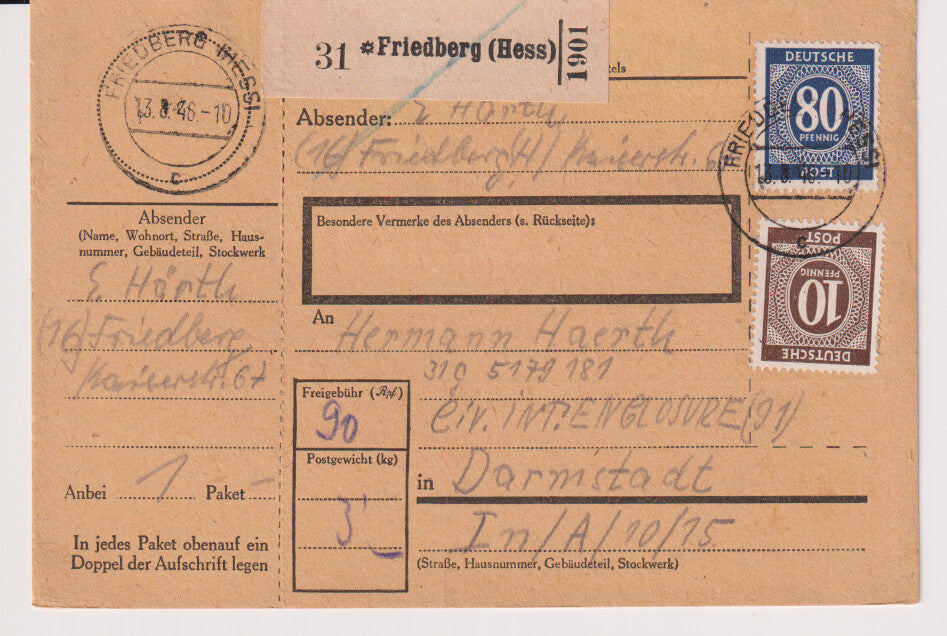 FRIEDBERG (HESS)
13.8.46-10
c
31 *Friedberg (Hess) 1901
Absender: E Härth
(16) Friedberg/H/ Kaiserstr.
Besondere Vermerke des Absenders (s. Rückseite):
Absender
(Name, Wohnort, Straße, Haus-
nummer, Gebäudeteil, Stockwerk
E Härth
(16) Friedberg
Kaiserstr. 67
Anbei 1 Paket
In jedes Paket obenauf ein
Doppel der Aufschrift legen
An Hermann Haerth
31g 5179181
Civ. INT. ENGLOSURE (91)
in Darmstadt
In/A/10/15
(Straße, Hausnummer, Gebäudeteil, Stockwerk)
Freigebühr (Rpf)
90
Postgewicht (kg)
3
DEUTSCHE
80
PFENNIG
POST
c
DEUTSCHE
10
PFENNIG
POST